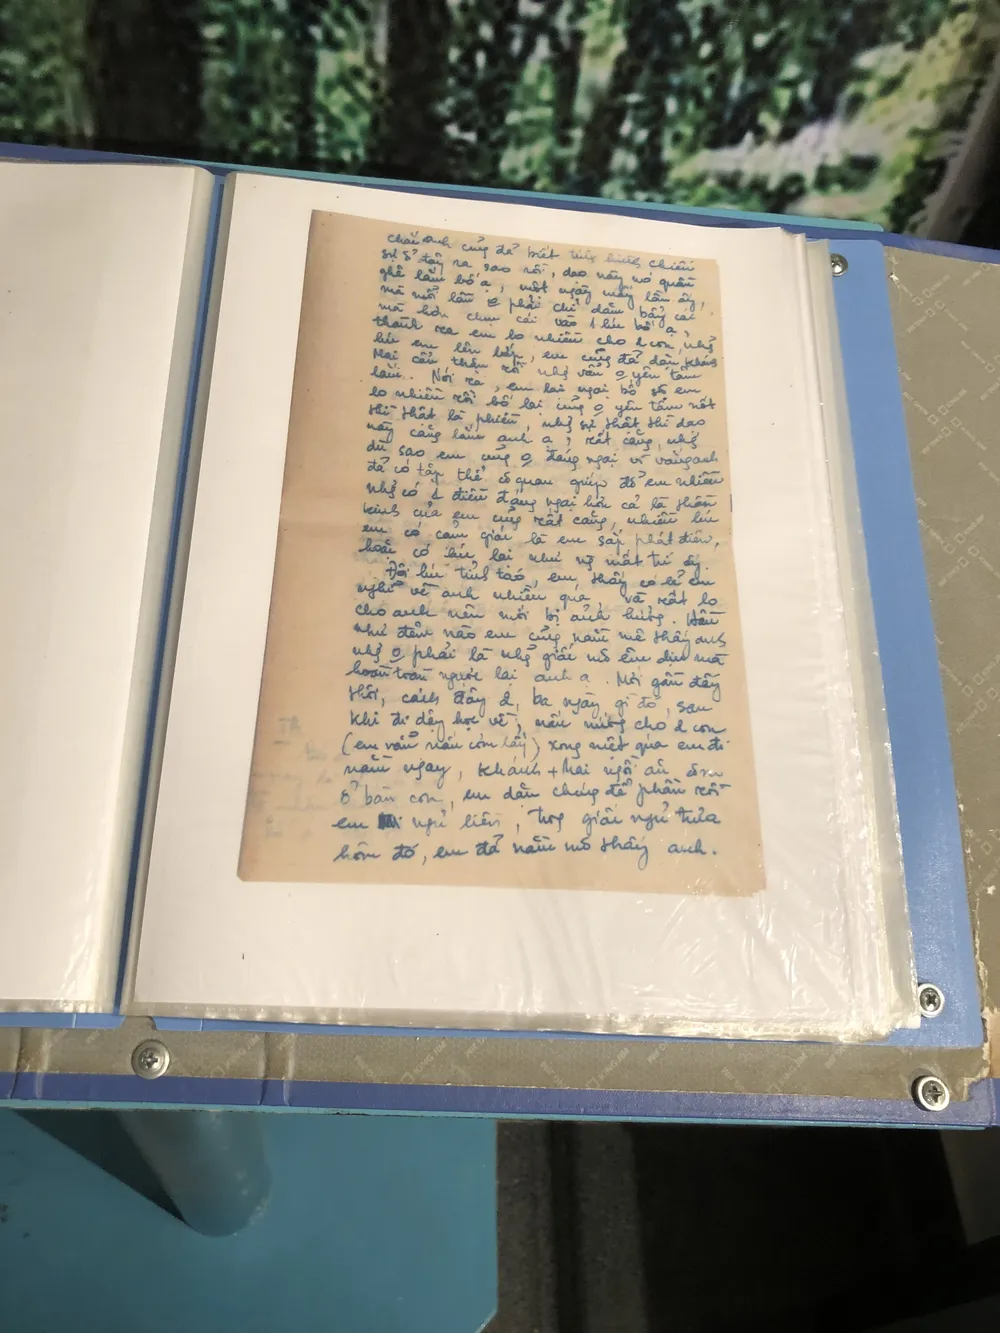 chắc anh cũng đã biết tình hình chiến
sự ở đây ra sao rồi, dạo này nó quần
ghê lắm bố ạ, một ngày mấy lần ấy,
mà mỗi lần o phải chỉ dăm bẩy cái
mà hơn chục cái vào 1 lúc bố ạ,
thành ra em lo nhiều cho 2 con, nhg
lúc em lên lớp, em cũng đã dặn Khánh
Mai cẩn thận rồi nhg vẫn o yên tâm
lắm. Nói ra, em lại ngại bố số em
lo nhiều rồi bố lại cũng o yên tâm nốt
thì thật là phiền, nhg sự thật thì dạo
này căng lắm anh ạ, rất căng, nhg
dù sao em cũng o đáng ngại vì vắng anh
đã có tập thể cơ quan giúp đỡ em nhiều
nhg có 1 điều đáng ngại hơn cả là thần
kinh của em cũng rất căng, nhiều lúc
em có cảm giác là em sắp phát điên,
hoặc có lúc lại như ng mất trí ấy.
Đôi lúc tỉnh táo, em thấy có lẽ em
nghĩ về anh nhiều quá và rất lo
cho anh nên mới bị ảnh hưởng. Hầu
như đêm nào em cũng nằm mê thấy anh
nhg o phải là nhg giấc mơ êm dịu mà
hoàn toàn ngược lại anh ạ. Mới gần đây
thôi, cách đây 2, ba ngày gì đó, sau
khi đi dạy học về, nấu nướng cho 2 con
(em vẫn nấu cơm lấy) xong mệt quá em đi
nằm ngay, Khánh + Mai ngồi ăn cơm
ở bàn con, em dặn chúng để phần rồi
em đi ngủ liền, trg giấc ngủ trưa
hôm đó, em đã nằm mơ thấy anh.